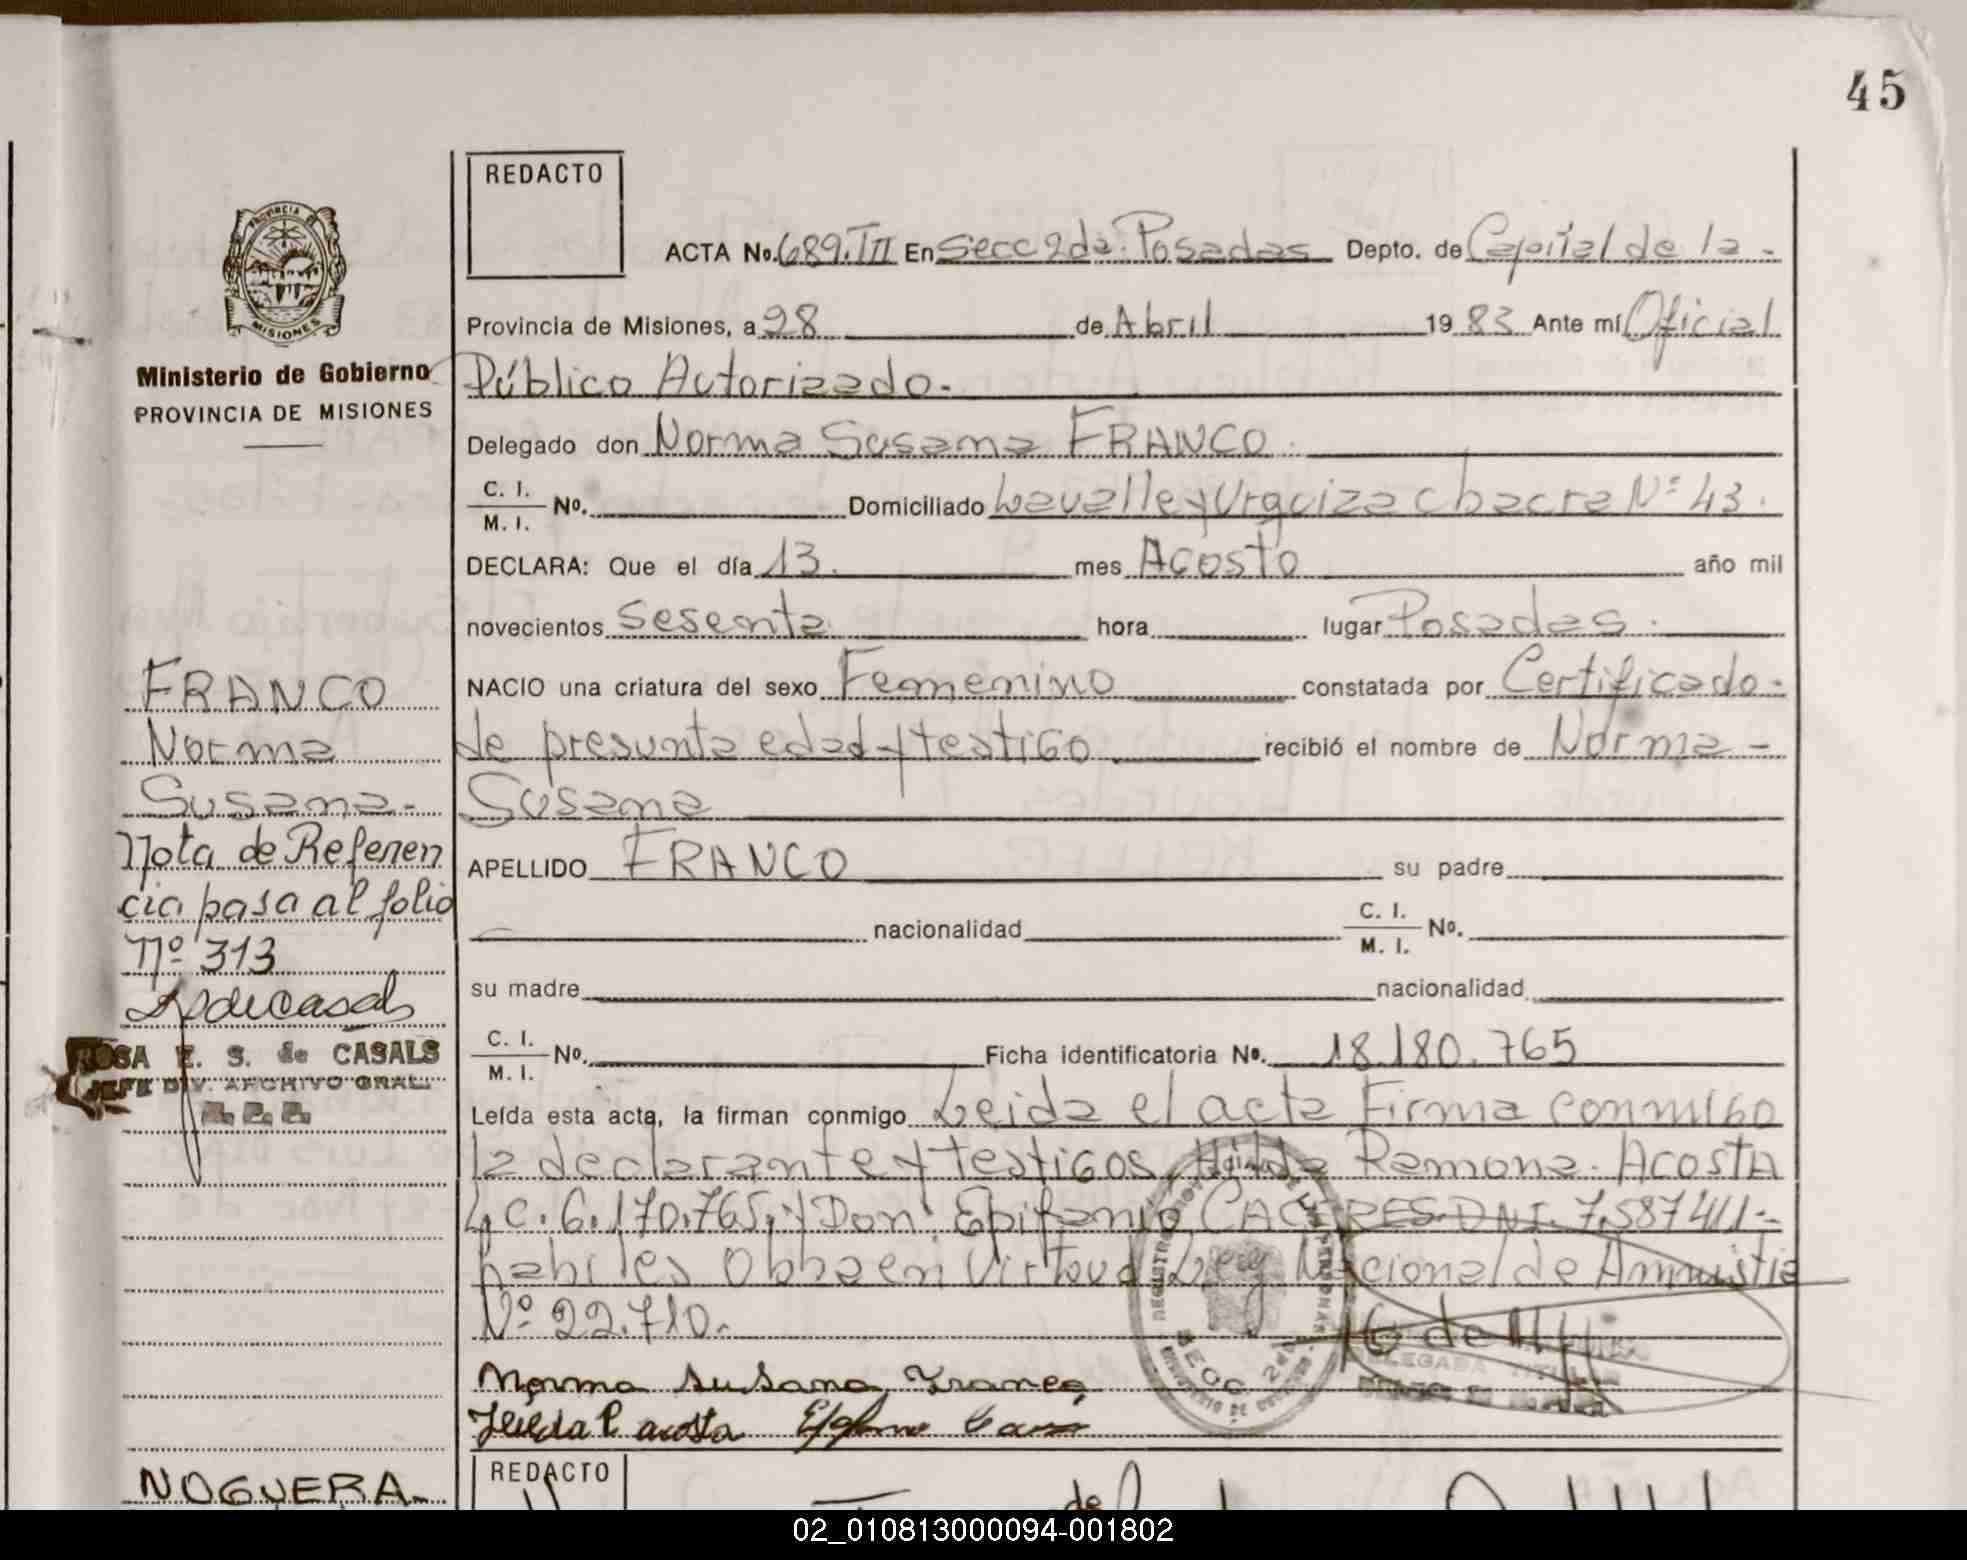 45
REDACTO
PROVINCIA DE
MISIONES
Ministerio de Gobierno
PROVINCIA DE MISIONES
ACTA No. 689.TII En Secc 2da. Posadas Depto. de Capital de la -
Provincia de Misiones, a 28 de Abril 1983 Ante mí Oficial
Público Autorizado.-
Delegado don Norma Susana FRANCO.
C. I.
M. I. No. Domiciliado Lavalle y Urquiza chacra Nº 43.
DECLARA: Que el día 13. mes Agosto año mil
novecientos sesenta hora lugar Posadas.
NACIO una criatura del sexo Femenino constatada por Certificado.
de presunta edad y testigo recibió el nombre de Norma -
Susana
APELLIDO FRANCO su padre
nacionalidad C. I.
M. I. No.
su madre nacionalidad
C. I.
M. I. No. Ficha identificatoria No. 18.180.765
Leída esta acta, la firman conmigo Leida el acta Firma conmigo
la declarante y testigos Hilda Ramona. ACOSTA
L.C. 6.170.765. y Don Epifanio CACERES DNI. 7.587411-
habiles Obba en virtoud Ley Nacional de Amnistia
Nº 22.710.
Norma Susana Franco
Hilda R acosta
FRANCO
Norma
Susana-
Nota de Referen
cia pasa al folio
Nº 313
ROSA E. S. de CASALS
JEFE DIV. ARCHIVO GRAL.
SECC 2da
NOGUERA-
REDACTO
de
02_010813000094-001802